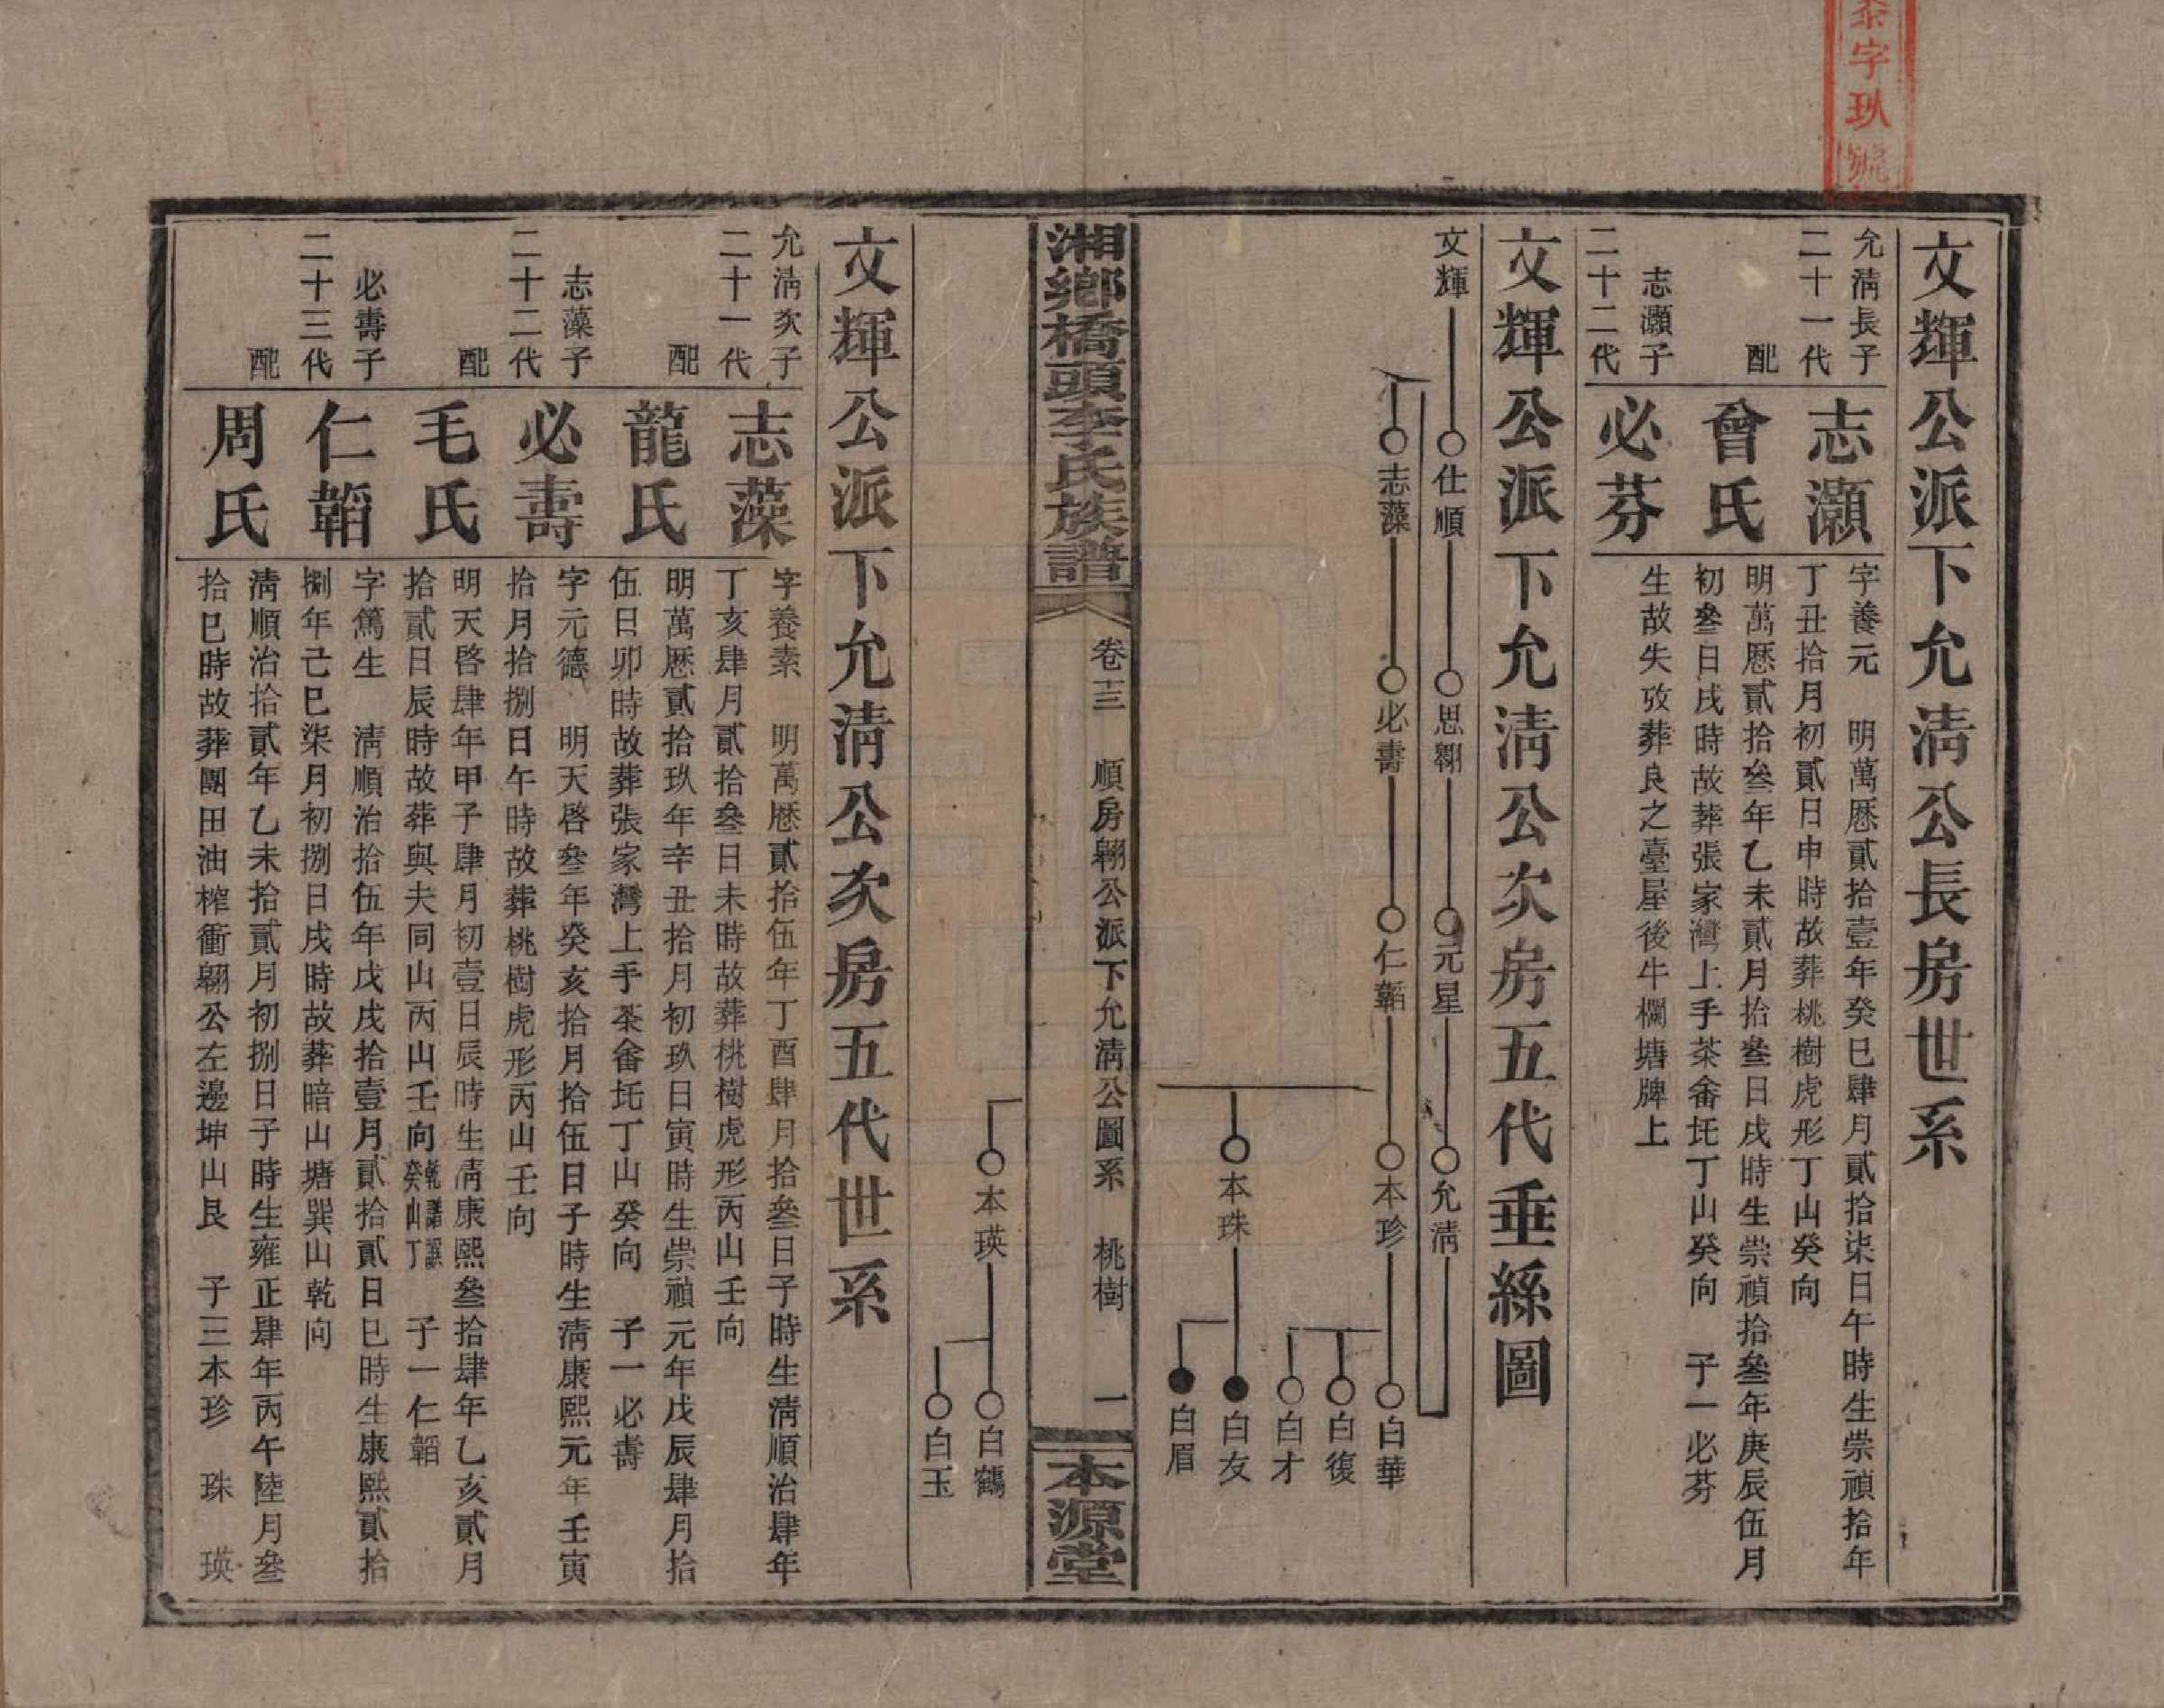 泰字玖號
文輝公派下允淸公長房世系
允淸長子
二十一代
志灝
字養元　明萬厯貳拾壹年癸巳肆月貳拾柒日午時生崇禎拾年
丁丑拾月初貳日申時故葬桃樹虎形丁山癸向
配
曾氏
明萬厯貳拾叄年乙未貳月拾叄日戌時生崇禎拾叄年庚辰伍月
初叄日戌時故葬張家灣上手茶畬圫丁山癸向　子一必芬
志灝子
二十二代
必芬
生故失攷葬良之臺屋後牛欄塘牌上
文輝公派下允淸公次房五代垂絲圖
文輝
仕順
思翱
元星
允淸
志藻
必壽
仁韜
本珍
白華
白復
白才
本珠
白友
白眉
湘鄉橋頭李氏族譜
卷十三　順房翱公派下允淸公圖系　桃樹　一
本源堂
本瑛
白鶴
白玉
文輝公派下允淸公次房五代世系
允淸次子
二十一代
志藻
字養素　明萬厯貳拾伍年丁酉肆月拾叄日子時生淸順治肆年
丁亥肆月貳拾叄日未時故葬桃樹虎形丙山壬向
配
龍氏
明萬厯貳拾玖年辛丑拾月初玖日寅時生崇禎元年戊辰肆月拾
伍日卯時故葬張家灣上手茶畬圫丁山癸向　子一必壽
志藻子
二十二代
必壽
字元德　明天啓叄年癸亥拾月拾伍日子時生淸康熙元年壬寅
拾月拾捌日午時故葬桃樹虎形丙山壬向
配
毛氏
明天啓肆年甲子肆月初壹日辰時生淸康熙叄拾肆年乙亥貳月
拾貳日辰時故葬與夫同山丙山壬向乾譜誤癸山丁　子一仁韜
必壽子
二十三代
仁韜
字篤生　淸順治拾伍年戊戌拾壹月貳拾貳日巳時生康熙貳拾
捌年己巳柒月初捌日戌時故葬暗山塘巽山乾向
配
周氏
淸順治拾貳年乙未拾貳月初捌日子時生雍正肆年丙午陸月叄
拾巳時故葬團田油榨衝翱公左邊坤山艮　子三本珍　珠　瑛